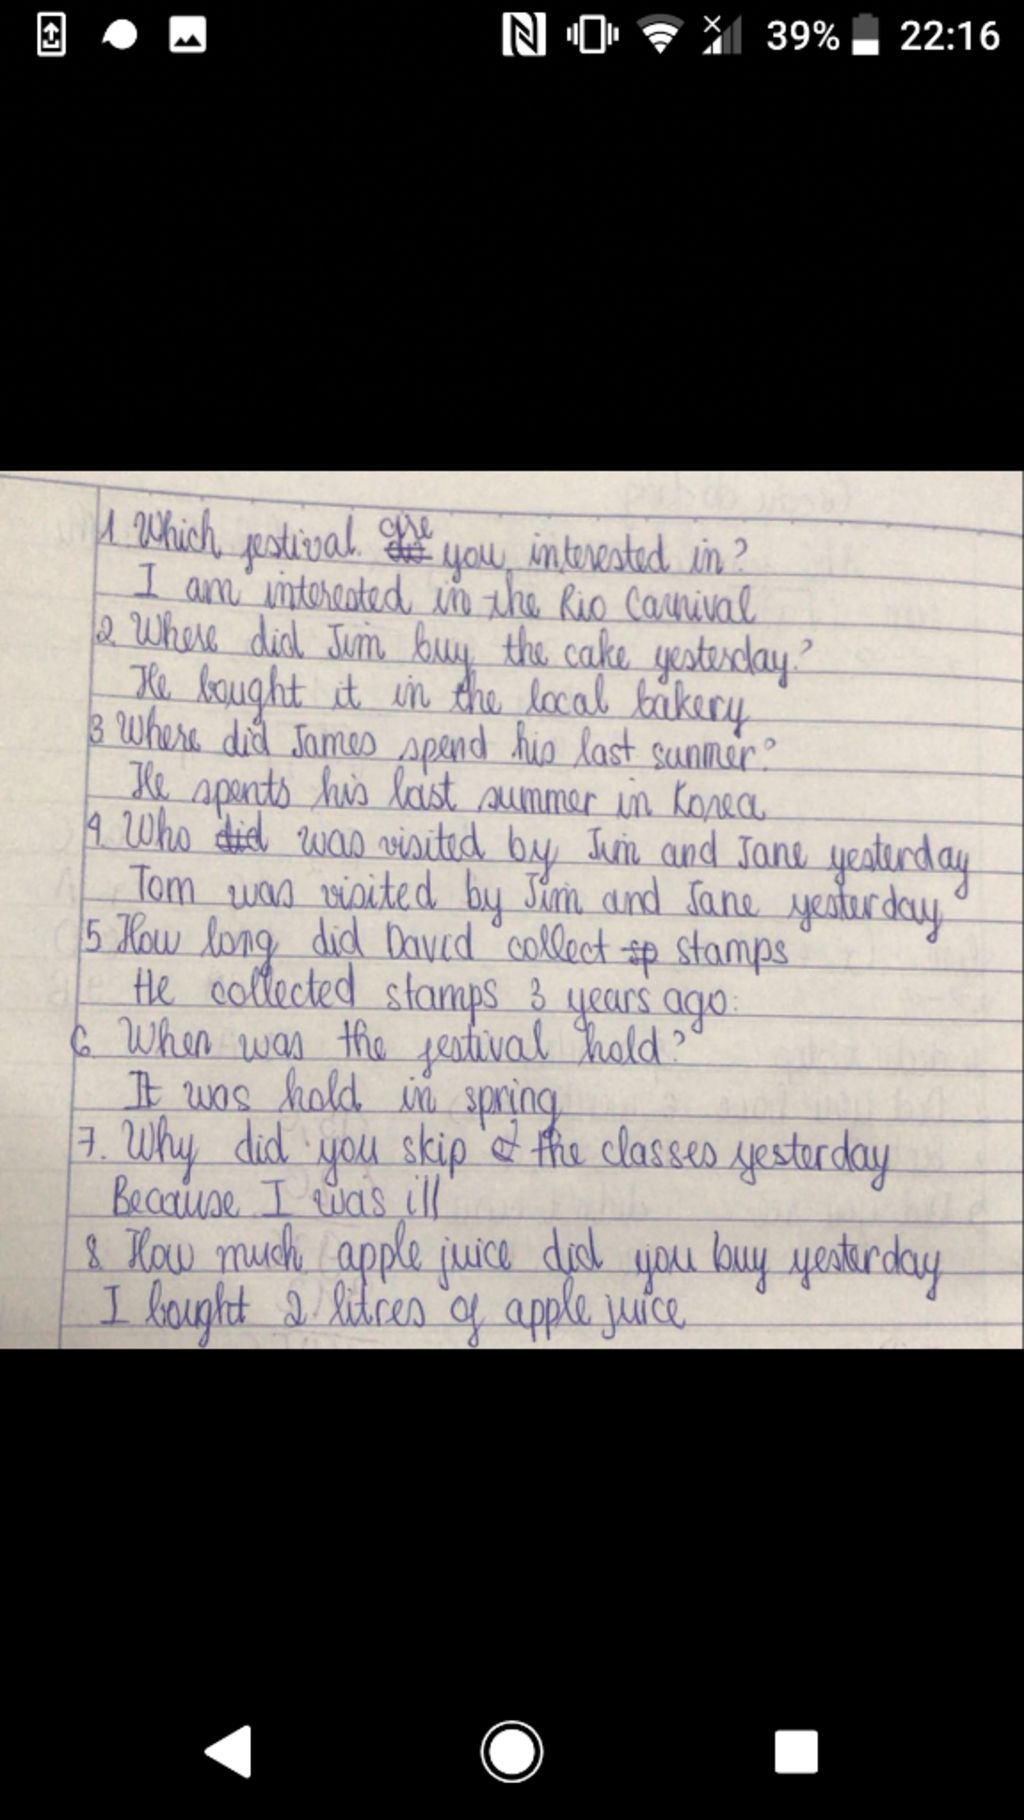 39% 22:16
1. Which festival are you interested in?
I am interested in the Rio Carnival
2. Where did Jim buy the cake yesterday?
He bought it in the local bakery
3 Where did James spend his last summer?
He spents his last summer in Korea
4. Who did was visited by Jim and Jane yesterday
Tom was visited by Jim and Jane yesterday
5 How long did David collect sp stamps
He collected stamps 3 years ago.
6. When was the festival hold?
It was hold in spring
7. Why did you skip the classes yesterday
Because I was ill
8. How much apple juice did you buy yesterday
I bought 2 litres of apple juice